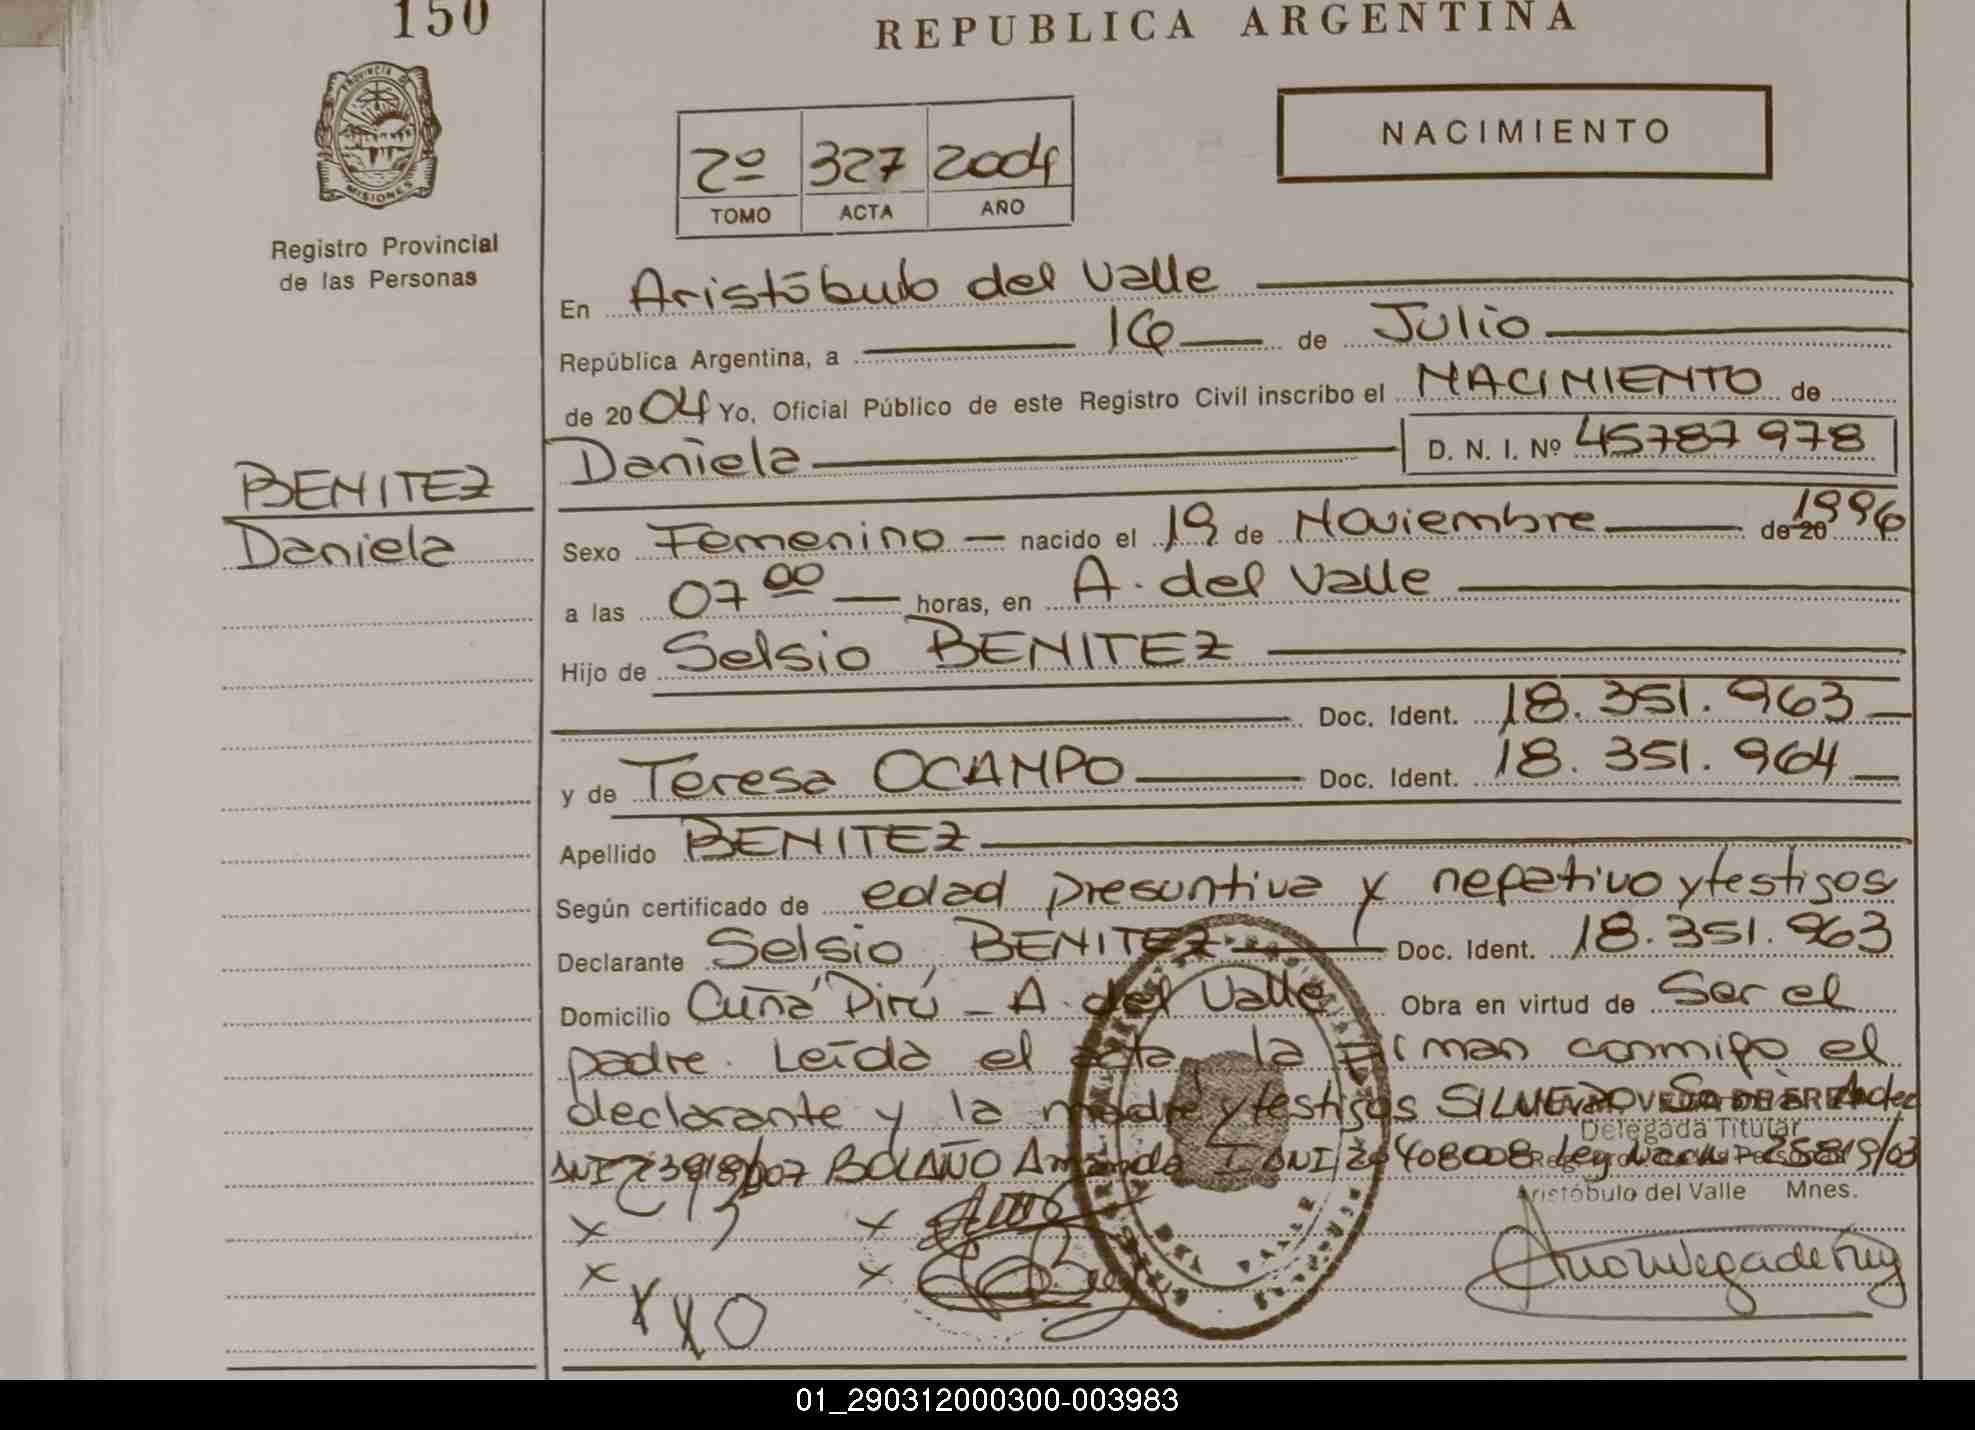 150
REPUBLICA ARGENTINA
PROVINCIA DE
MISIONES
Registro Provincial
de las Personas
2º 327 2004
TOMO ACTA AÑO
NACIMIENTO
En Aristóbulo del Valle
República Argentina, a 16 de Julio
de 2004 Yo, Oficial Público de este Registro Civil inscribo el NACIMIENTO de
Daniela D. N. I. Nº 45787978
BENITEZ
Daniela
Sexo Femenino nacido el 19 de Noviembre de 20 1996
a las 07 00 horas, en A. del Valle
Hijo de Selsio BENITEZ
Doc. Ident. 18.351.963
y de Teresa OCAMPO Doc. Ident. 18.351.964
Apellido BENITEZ
Según certificado de edad presuntiva y negativo y testigos
Declarante Selsio BENITEZ Doc. Ident. 18.351.963
Domicilio Cuñá Pirú - A. del Valle Obra en virtud de Ser el
padre. Leída el acta, la firman conmigo el
declarante y la madre y testigos SILVERO
Delegada Titular
DNI BOLAÑO Amanda DNI 20408008 Ley 25819/03
Aristóbulo del Valle Mnes.
DEL VALLE
01_290312000300-003983